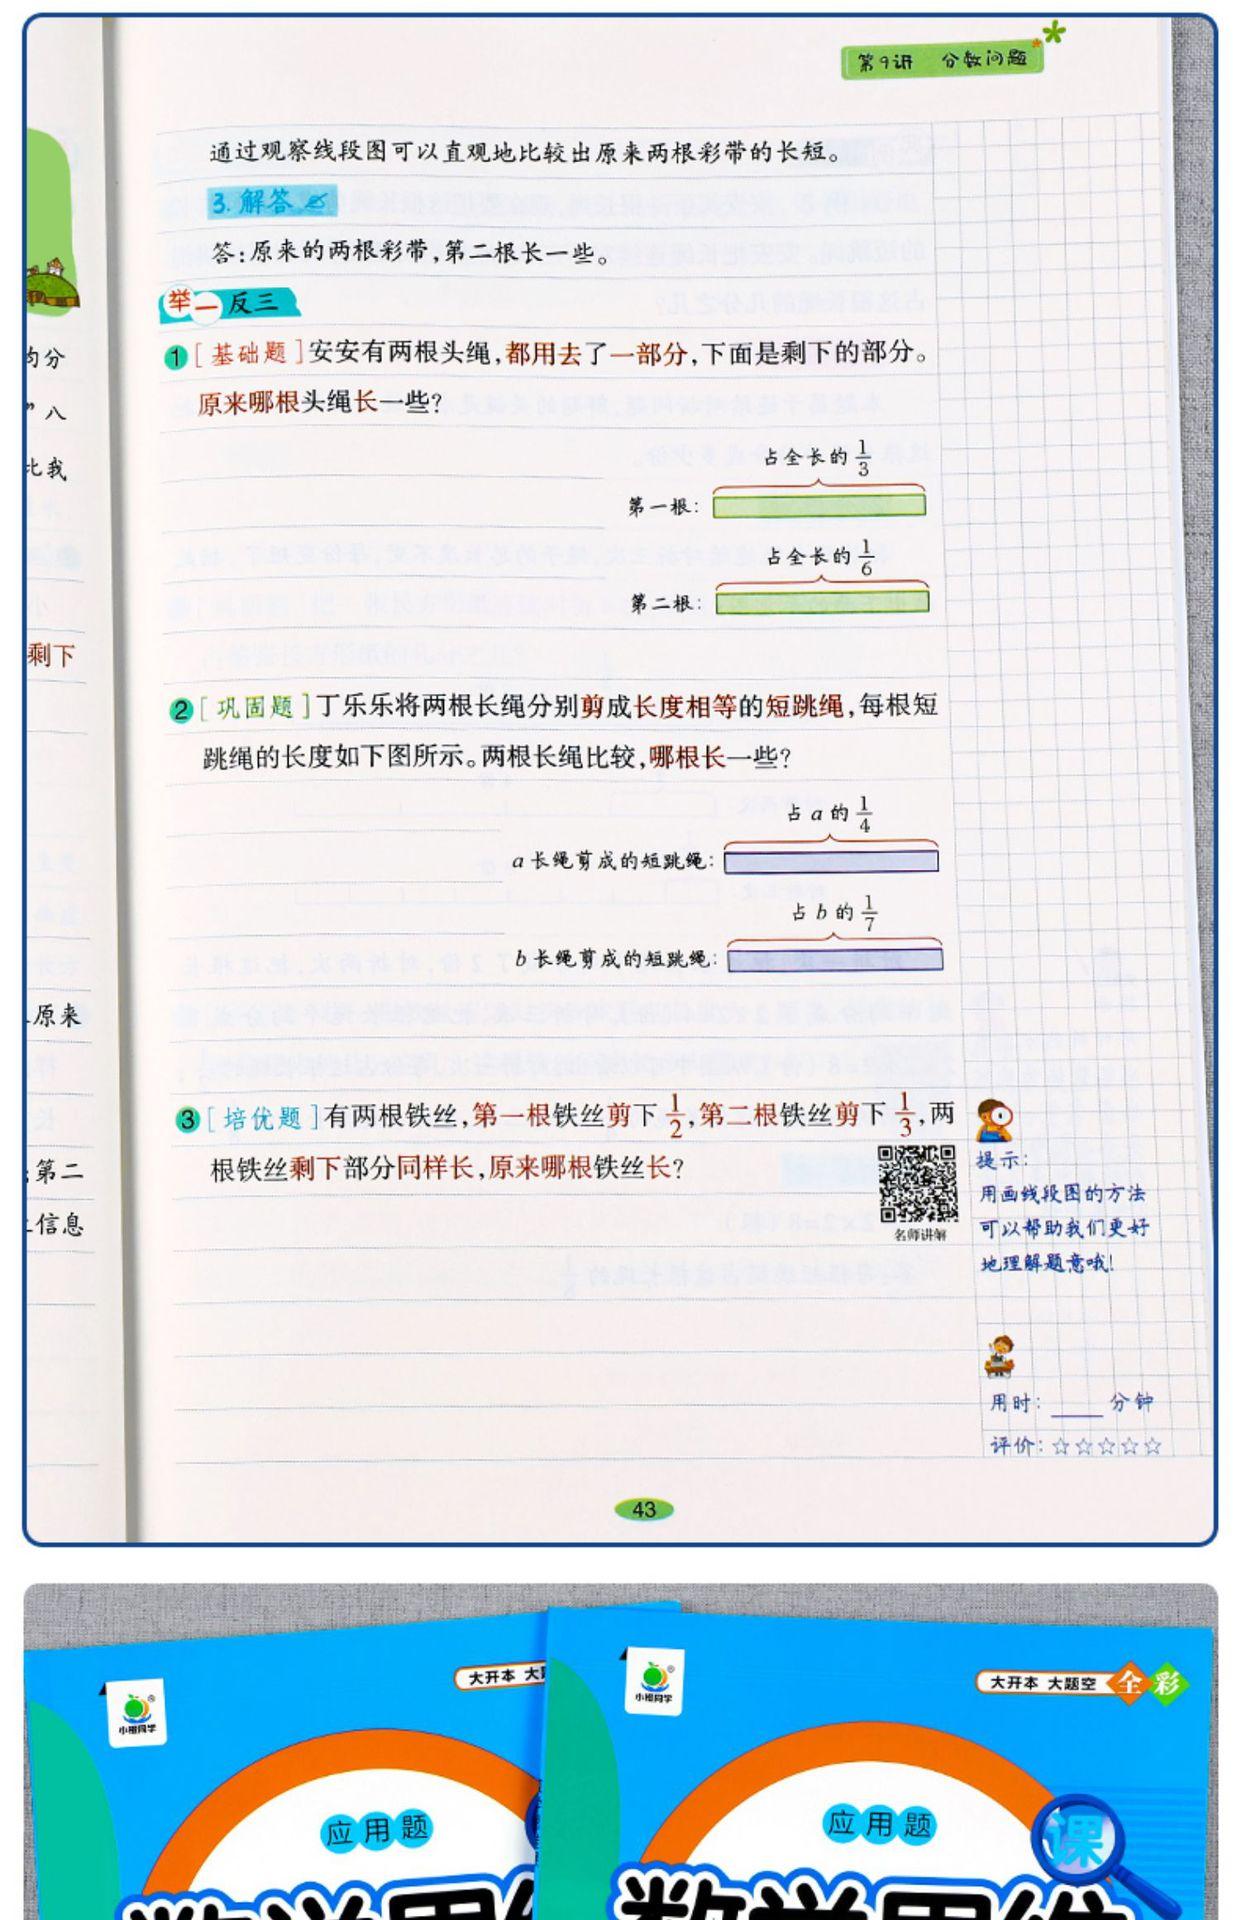 第9讲 分数问题
通过观察线段图可以直观地比较出原来两根彩带的长短。
3.解答
答:原来的两根彩带,第二根长一些。
举一反三
1[基础题]安安有两根头绳,都用去了一部分,下面是剩下的部分。
原来哪根头绳长一些?
占全长的1/3
第一根:
占全长的1/6
第二根:
2[巩固题]丁乐乐将两根长绳分别剪成长度相等的短跳绳,每根短
跳绳的长度如下图所示。两根长绳比较,哪根长一些?
占a的1/4
a长绳剪成的短跳绳:
占b的1/7
b长绳剪成的短跳绳:
3[培优题]有两根铁丝,第一根铁丝剪下1/2,第二根铁丝剪下1/3,两
根铁丝剩下部分同样长,原来哪根铁丝长?
名师讲解
提示:
用画线段图的方法
可以帮助我们更好
地理解题意哦!
用时: 分钟
评价:☆☆☆☆☆
43
均分
”八
比我
剩下
原来
第二
信息
小橙同学
大开本 大
应用题
小橙同学
大开本 大题空 全彩
应用题
课
数学思维